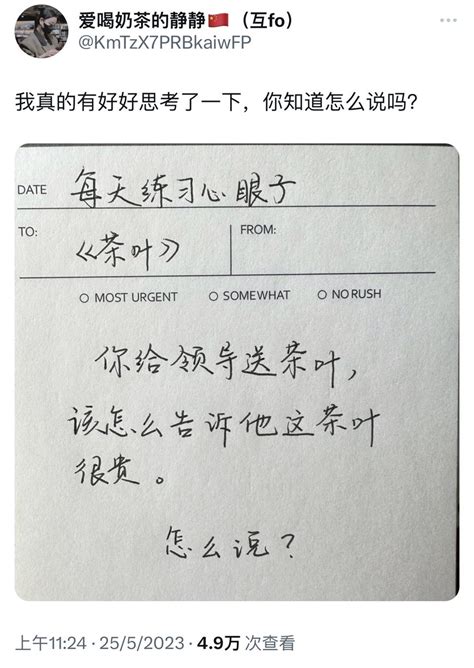 爱喝奶茶的静静🇨🇳（互fo）
@KmTzX7PRBkaiwFP
我真的有好好思考了一下，你知道怎么说吗？
DATE 每天练习心眼子
TO: 《茶叶》 FROM:
MOST URGENT SOMEWHAT NO RUSH
你给领导送茶叶，
该怎么告诉他这茶叶
很贵。
怎么说？
上午11:24 · 25/5/2023 · 4.9万 次查看